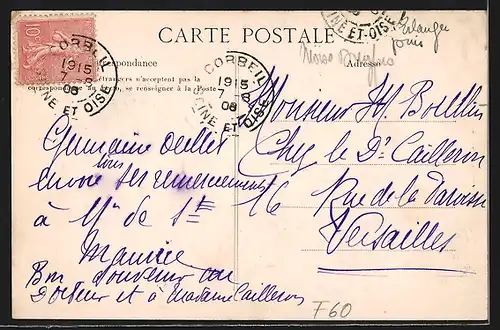 CARTE POSTALE
Correspondance
Adresse
étrangers n'acceptent pas la
correspondance au recto, se renseigner à la Poste
CORBEIL
1915
7-8
08
SEINE ET OISE
CORBEIL
1915
7-8
08
SEINE ET OISE
NE ET-OISE
10
Germaine
tous
envoie ses remerciements
à Mr de Ste
Maurice
Bon souvenir au
Docteur et à Madame Cailleron
Monsieur H.
Chez le Dr Cailleron
16 Rue de la Paroisse
Versailles
F60